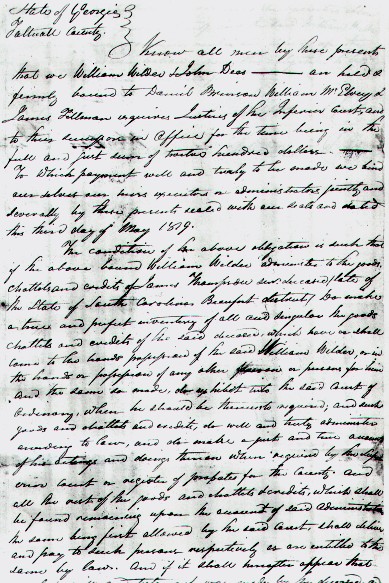 State of Georgia
Tattnall County
Know all men by these presents
that we William Wilder & John Deas are held &
firmly bound to Daniel Brinson William McElvey &
James Tillman esquires Justices of the Inferior Court, and
to their successors in office for the time being in the
full and just sum of hundred dollars
To which payment well and truly to be made we bind
our selves our heirs executors or administrators, jointly and
severally by these presents sealed with our seals and dated
this third day of May 1819.
The condition of the above obligation is such that
if the above bound William Wilder adminr to the goods,
chattels and credits of James Thompson senr. deceased (late of
the State of South Carolina Beaufort district) Do make
a true and perfect inventory of all and singular the goods
chattels and credits of the said deceased, which have or shall
come to the hands possession of the said William Wilder, or in
the hands or possession of any other person or persons for him
and the same so made, do exhibit into the said Court of
Ordinary, when he should be thereunto required; and such
goods and chattels and credits, do well and truly administer
according to law, and do make a just and true account
of his actings and doings therein when required by the
court or register of probates for the County; and
all the rest of the goods and chattels & credits, which shall
be found remaining upon the account of said administration
the same being first allowed by the said court, shall deliver
and pay to such persons respectively as are entitled to the
same by law. And if it shall hereafter appear that